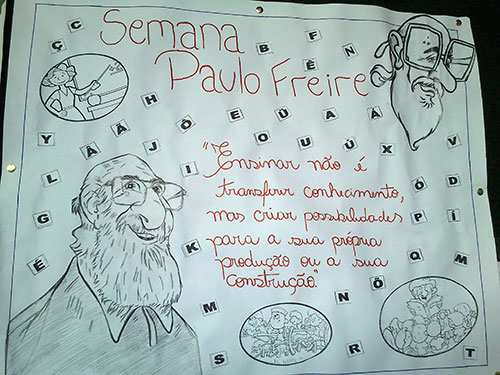 Semana
Paulo Freire
"Ensinar não é
transferir conhecimento,
mas criar possibilidades
para a sua própria
produção ou a sua
construção."
Ç C B F
N Ê
H Ó E Ú A Á
Y À Â J Ô E O U Ú X V
L I D Ó
G P Í
É K
M N Ô Q M
S R T